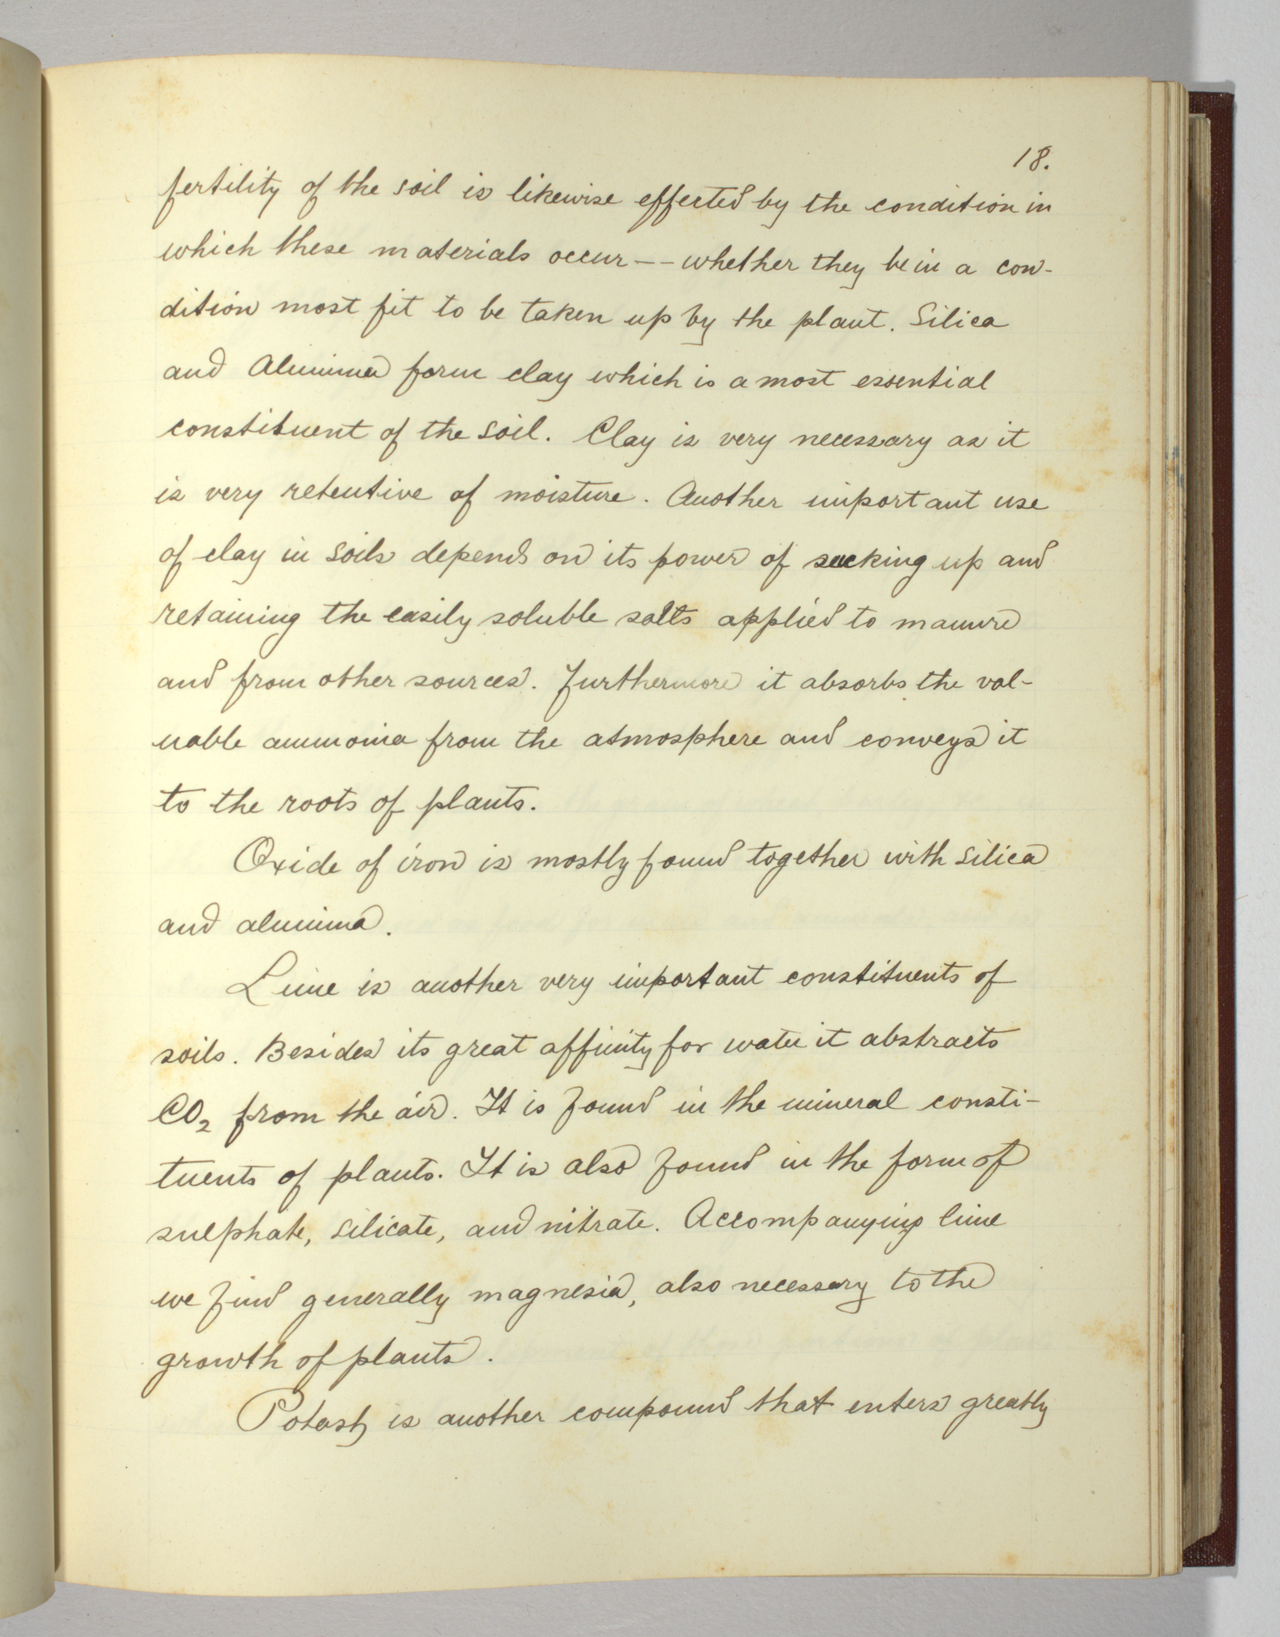 18.
fertility of the soil is likewise effected by the condition in
which these materials occur -- whether they be in a con-
dition most fit to be taken up by the plant. Silica
and Alumina form clay which is a most essential
constituent of the soil. Clay is very necessary as it
is very retentive of moisture. Another important use
of clay in soils depends on its power of sucking up and
retaining the easily soluble salts applied to manure
and from other sources. Furthermore it absorbs the val-
uable ammonia from the atmosphere and conveys it
to the roots of plants.
Oxide of iron is mostly found together with silica
and alumina.
Lime is another very important constituents of
soils. Besides its great affinity for water it abstracts
CO₂ from the air. It is found in the mineral consti-
tuents of plants. It is also found in the form of
sulphate, silicate, and nitrate. Accompanying lime
we find generally magnesia, also necessary to the
growth of plants.
Potash is another compound that enters greatly